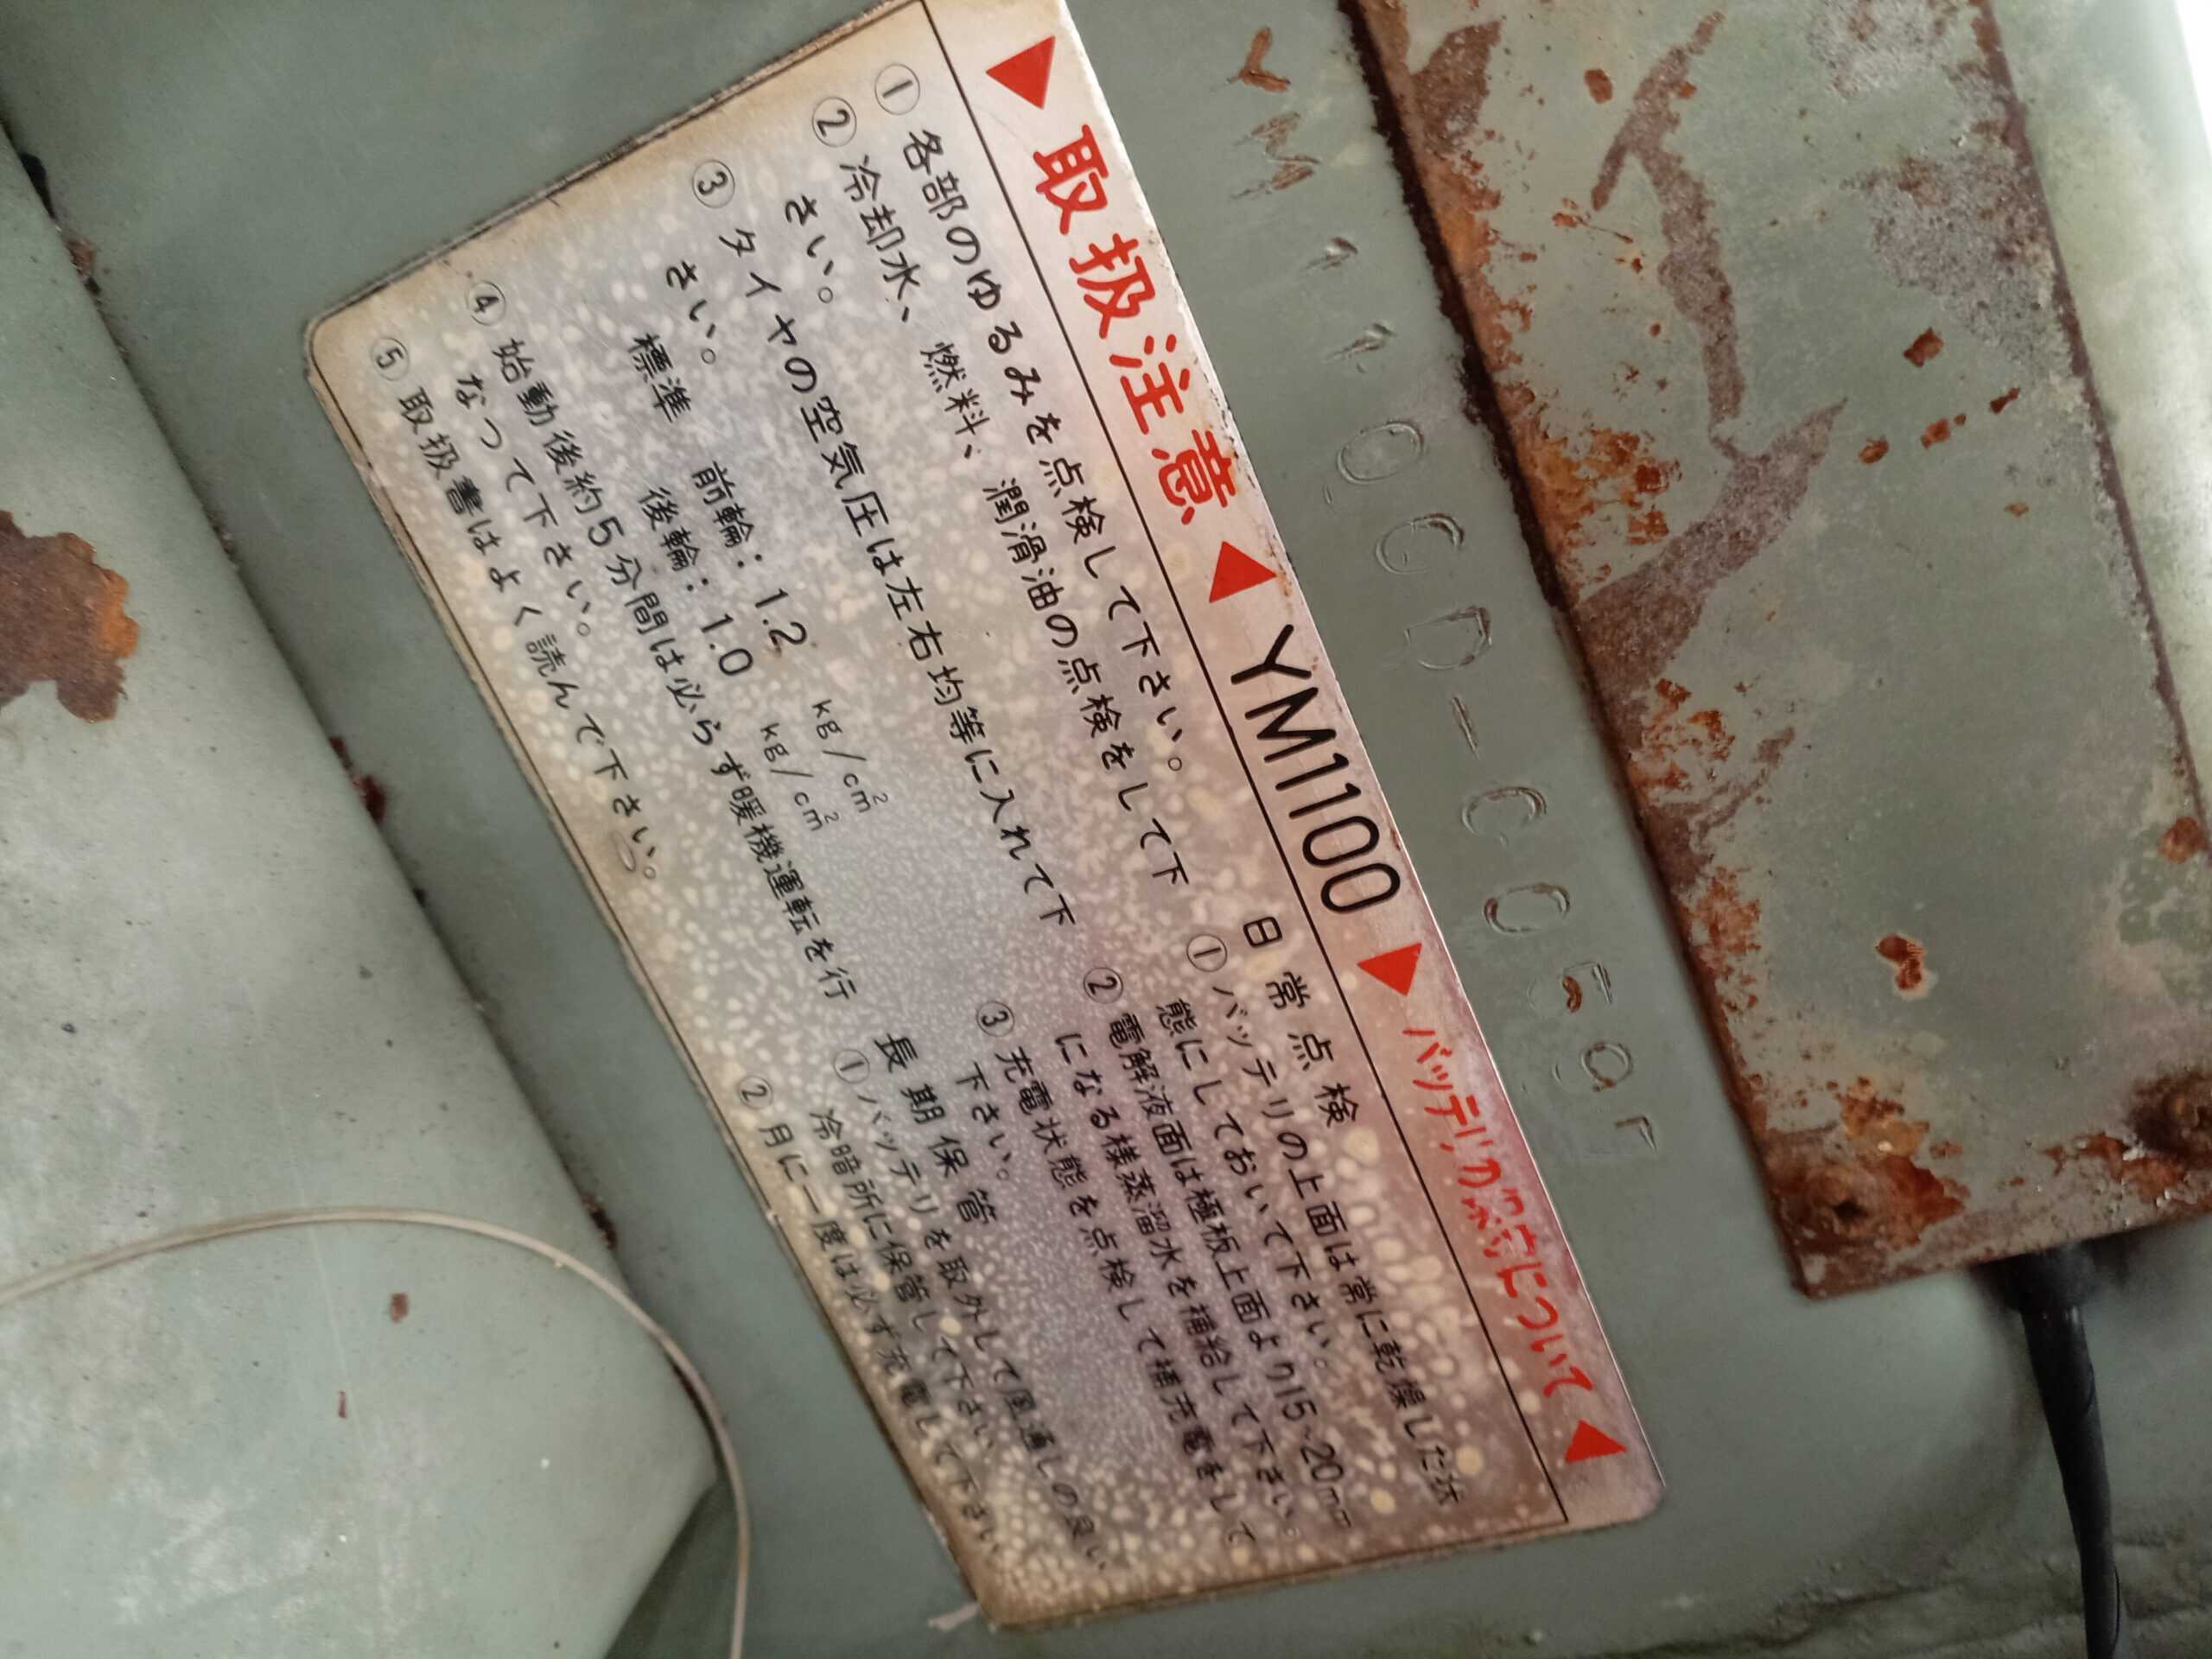 ▶取扱注意◀ YM1100 ▶バッテリの保守について◀
① 各部のゆるみを点検して下さい。
② 冷却水、燃料、潤滑油の点検をして下
さい。
③ タイヤの空気圧は左右均等に入れて下
さい。
標準 前輪：1.2 kg/cm²
後輪：1.0 kg/cm²
④ 始動後約5分間は必らず暖機運転を行
なつて下さい。
⑤ 取扱書はよく読んで下さい。
日常点検
① バッテリの上面は常に乾燥した状
態にしておいて下さい。
② 電解液面は極板上面より15~20mm
になる様蒸溜水を補給して下さい。
③ 充電状態を点検して補充電をして
下さい。
長期保管
① バッテリを取外して風通しの良い
冷暗所に保管して下さい
② 月に一度は必ず充電して下さい